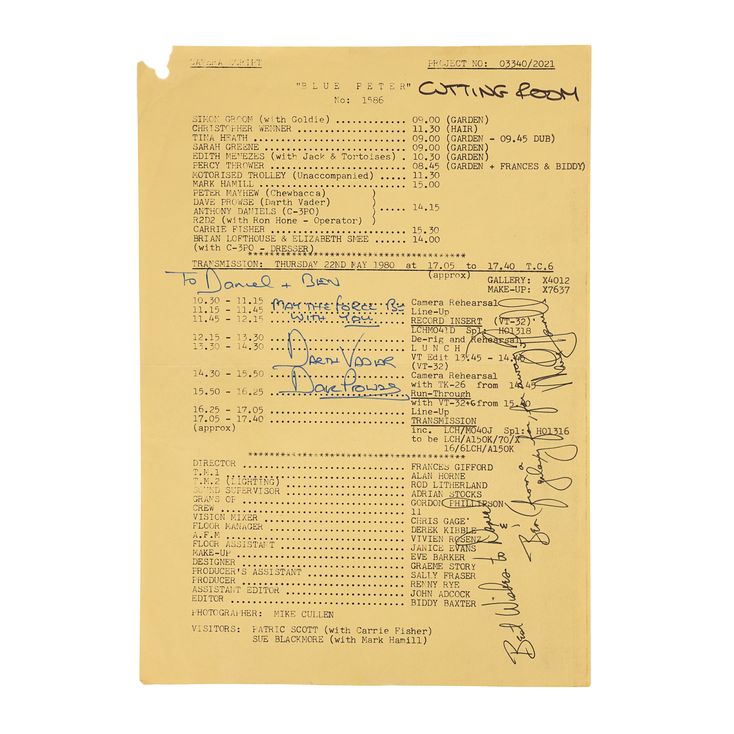 CAMERA SCRIPT PROJECT NO: 03340/2021
"BLUE PETER" CUTTING ROOM
No: 1586
SIMON GROOM (with Goldie) .............. 09.00 (GARDEN)
CHRISTOPHER WENNER ..................... 11.30 (HAIR)
TINA HEATH ............................. 09.00 (GARDEN - 09.45 DUB)
SARAH GREENE ........................... 09.00 (GARDEN)
EDITH MENEZES (with Jack & Tortoises) . 10.30 (GARDEN)
PERCY THROWER .......................... 08.45 (GARDEN + FRANCES & BIDDY)
MOTORISED TROLLEY (Unaccompanied) ..... 11.30
MARK HAMILL ............................ 15.00
PETER MAYHEW (Chewbacca) )
DAVE PROWSE (Darth Vader) )
ANTHONY DANIELS (C-3PO) ) ..... 14.15
R2D2 (with Ron Hone - Operator) )
CARRIE FISHER .......................... 15.30
BRIAN LOFTHOUSE & ELIZABETH SMEE ...... 14.00
(with C-3PO - DRESSER)
****************************************
TRANSMISSION: THURSDAY 22ND MAY 1980 at 17.05 to 17.40 T.C.6
(approx)
To Daniel + BEN
GALLERY: X4012
MAKE-UP: X7637
10.30 - 11.15 Camera Rehearsal
11.15 - 11.45 MAY THE FORCE BY Line-Up
11.45 - 12.15 WITH YOU RECORD INSERT (VT-32)
LCHM041D Spl: H01318
12.15 - 13.30 De-rig and Rehearsal
13.30 - 14.30 LUNCH
VT Edit 13.45 - 14.
(VT-32)
DARTH VADER
14.30 - 15.50 Camera Rehearsal
with TK-26 from 14.45
Dave Prowse
15.50 - 16.25 Run-Through
with VT-32+6 from 15.50
16.25 - 17.05 Line-Up
17.05 - 17.40 TRANSMISSION
(approx) inc. LCH/M040J Spl: H01316
to be LCH/A150K/70/X
16/6LCH/A150K
****************************************
DIRECTOR .............................. FRANCES GIFFORD
T.M.1 ................................. ALAN HORNE
T.M.2 (LIGHTING) ...................... ROD LITHERLAND
SOUND SUPERVISOR ...................... ADRIAN STOCKS
GRAMS OP .............................. GORDON PHILLIPSON
CREW .................................. 11
VISION MIXER .......................... CHRIS GAGE
FLOOR MANAGER ......................... DEREK KIBBLE
A.F.M ................................. VIVIEN ROSENZ
FLOOR ASSISTANT ....................... JANICE EVANS
MAKE-UP ............................... EVE BARKER
DESIGNER .............................. GRAEME STORY
PRODUCER'S ASSISTANT .................. SALLY FRASER
PRODUCER .............................. RENNY RYE
ASSISTANT EDITOR ...................... JOHN ADCOCK
EDITOR ................................ BIDDY BAXTER
PHOTOGRAPHER: MIKE CULLEN
VISITORS: PATRIC SCOTT (with Carrie Fisher)
SUE BLACKMORE (with Mark Hamill)
Best Wishes to Daniel &
Ben from a galaxy far, far away
Mark Hamill